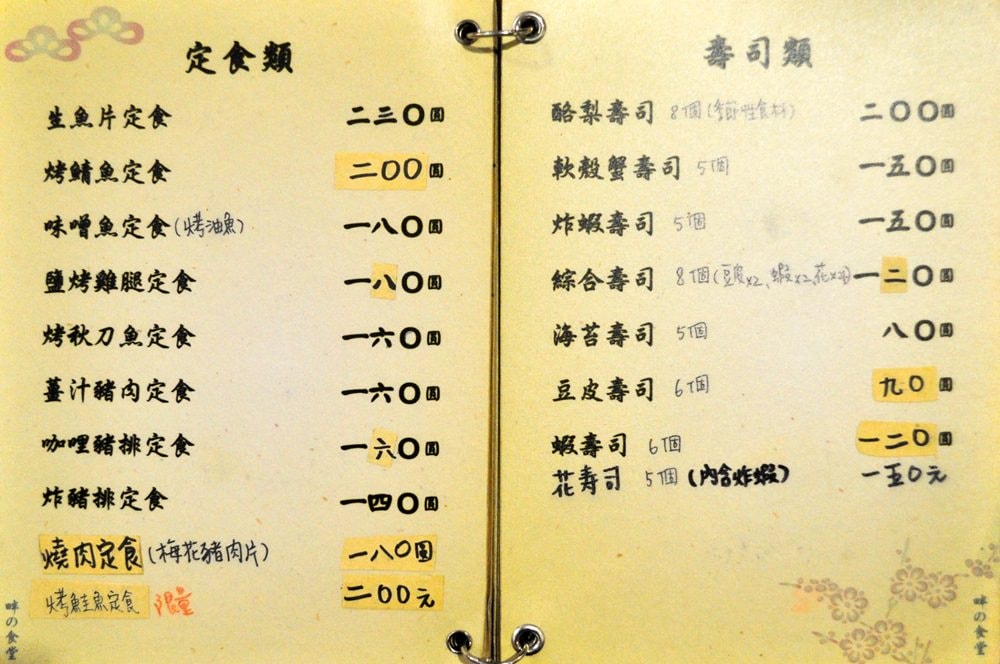 定食類
生魚片定食 二三〇圓
烤鯖魚定食 二〇〇圓
味噌魚定食(烤油魚) 一八〇圓
鹽烤雞腿定食 一八〇圓
烤秋刀魚定食 一六〇圓
薑汁豬肉定食 一六〇圓
咖哩豬排定食 一六〇圓
炸豬排定食 一四〇圓
燒肉定食(梅花豬肉片) 一八〇圓
烤鮭魚定食 限量 二〇〇元
畔の食堂
壽司類
酪梨壽司 8個(季節性食材) 二〇〇圓
軟殼蟹壽司 5個 一五〇圓
炸蝦壽司 5個 一五〇圓
綜合壽司 8個(豆皮x2、蝦x2、花x4) 一二〇圓
海苔壽司 5個 八〇圓
豆皮壽司 6個 九〇圓
蝦壽司 6個 一二〇圓
花壽司 5個(內含炸蝦) 一五〇元
畔の食堂